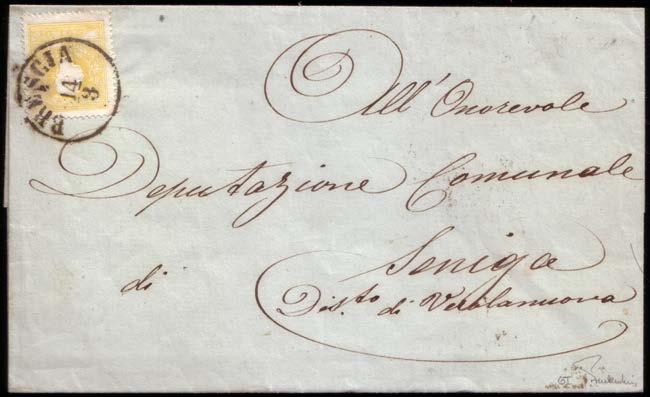 BRESCIA
14
3
All' Onorevole
Deputazione Comunale
di Seniga
Dis.to di Verolanuova